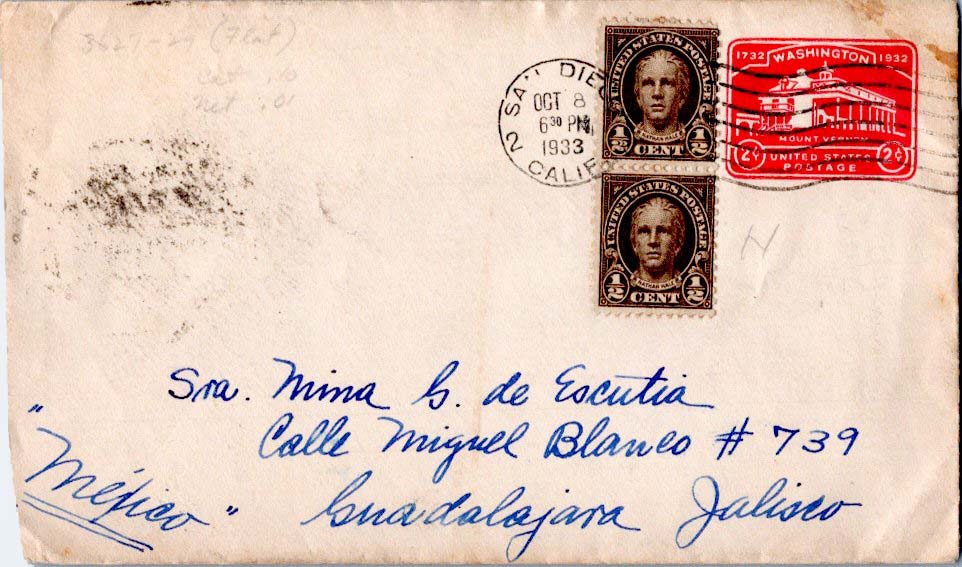 3627-29 (Flat)
Net .10
Net .01
2 SAN DIEGO CALIF
OCT 8
6 30 PM
1933
UNITED STATES POSTAGE
NATHAN HALE
1/2 CENT 1/2
UNITED STATES POSTAGE
NATHAN HALE
1/2 CENT 1/2
1732 WASHINGTON 1932
MOUNT VERNON
2¢ UNITED STATES 2¢
POSTAGE
N
Sra. Mina G. de Escutia
Calle Miguel Blanco # 739
"México" Guadalajara Jalisco